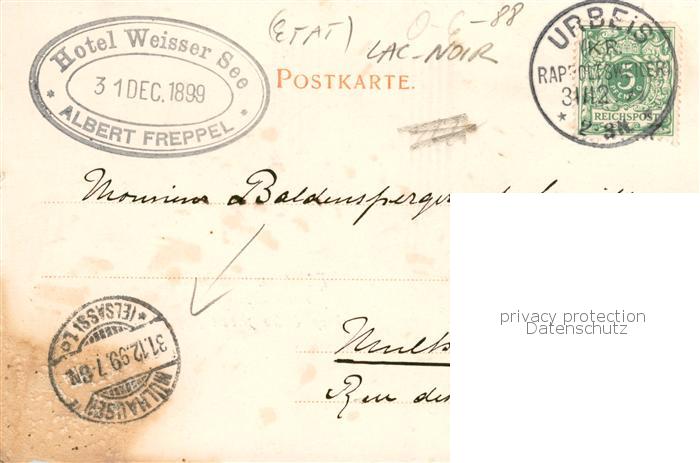 Hotel Weisser See
31 DEC. 1899
* ALBERT FREPPEL *
(ETAT)
LAC-NOIR
-88
POSTKARTE.
URBEIS
(KR.
RAPPOLTSWEILER)
31 12
* 2-3N. *
5
REICHSPOST
Monsieur Baldensperger
privacy protection
Datenschutz
* (ELSASS) 1.c.
31.12.99.7-8N.
MÜLHAUSEN
Mulh
Rue des